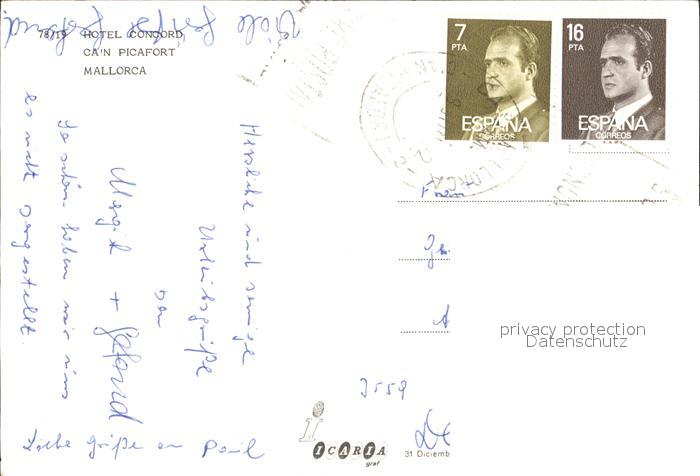 78/19 HOTEL CONCORD
CA'N PICAFORT
MALLORCA
Viele Grüße
Herzliche und sonnige
Urlaubsgrüße
von
Margit +
So schön haben wir uns
es nicht vorgestellt.
Liebe Grüße an Paul
7 PTA
ESPAÑA
CORREOS
16 PTA
ESPAÑA
CORREOS
MALLORCA
privacy protection
Datenschutz
ICARIA
graf
31 Diciemb